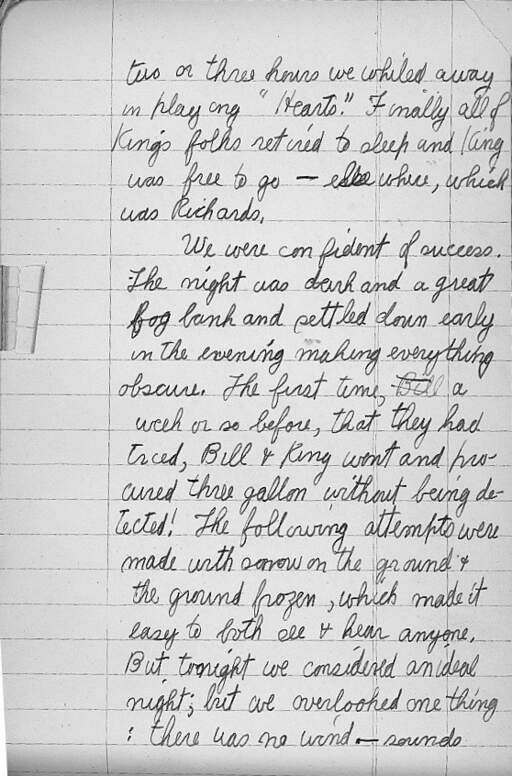 two or three hours we whiled away
in playing "Hearts." Finally all of
King's folks retired to sleep and King
was free to go — elsewhere, which
was Richards.
We were confident of success.
The night was dark and a great
fog bank and settled down early
in the evening making everything
obscure. The first time, Bill a
week or so before, that they had
tried, Bill & King went and pro-
cured three gallon without being de-
tected! The following attempts were
made with snow on the ground &
the ground frozen, which made it
easy to both see & hear anyone.
But tonight we considered an ideal
night; but we overlooked one thing
: there was no wind — sounds